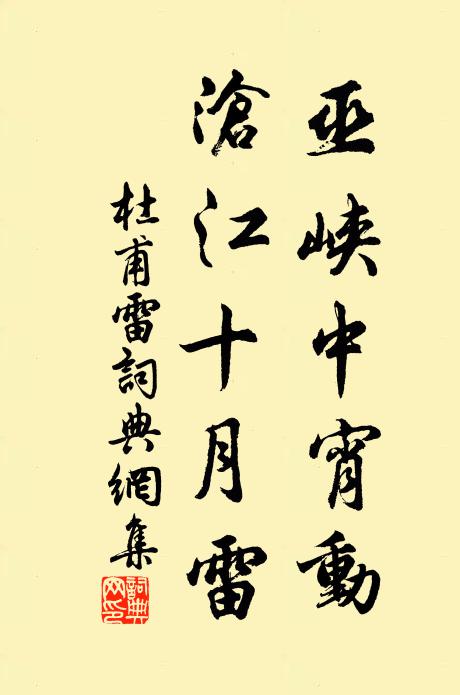 巫峽中宵動
滄江十月雷
杜甫雷詞典網集
詞典網印